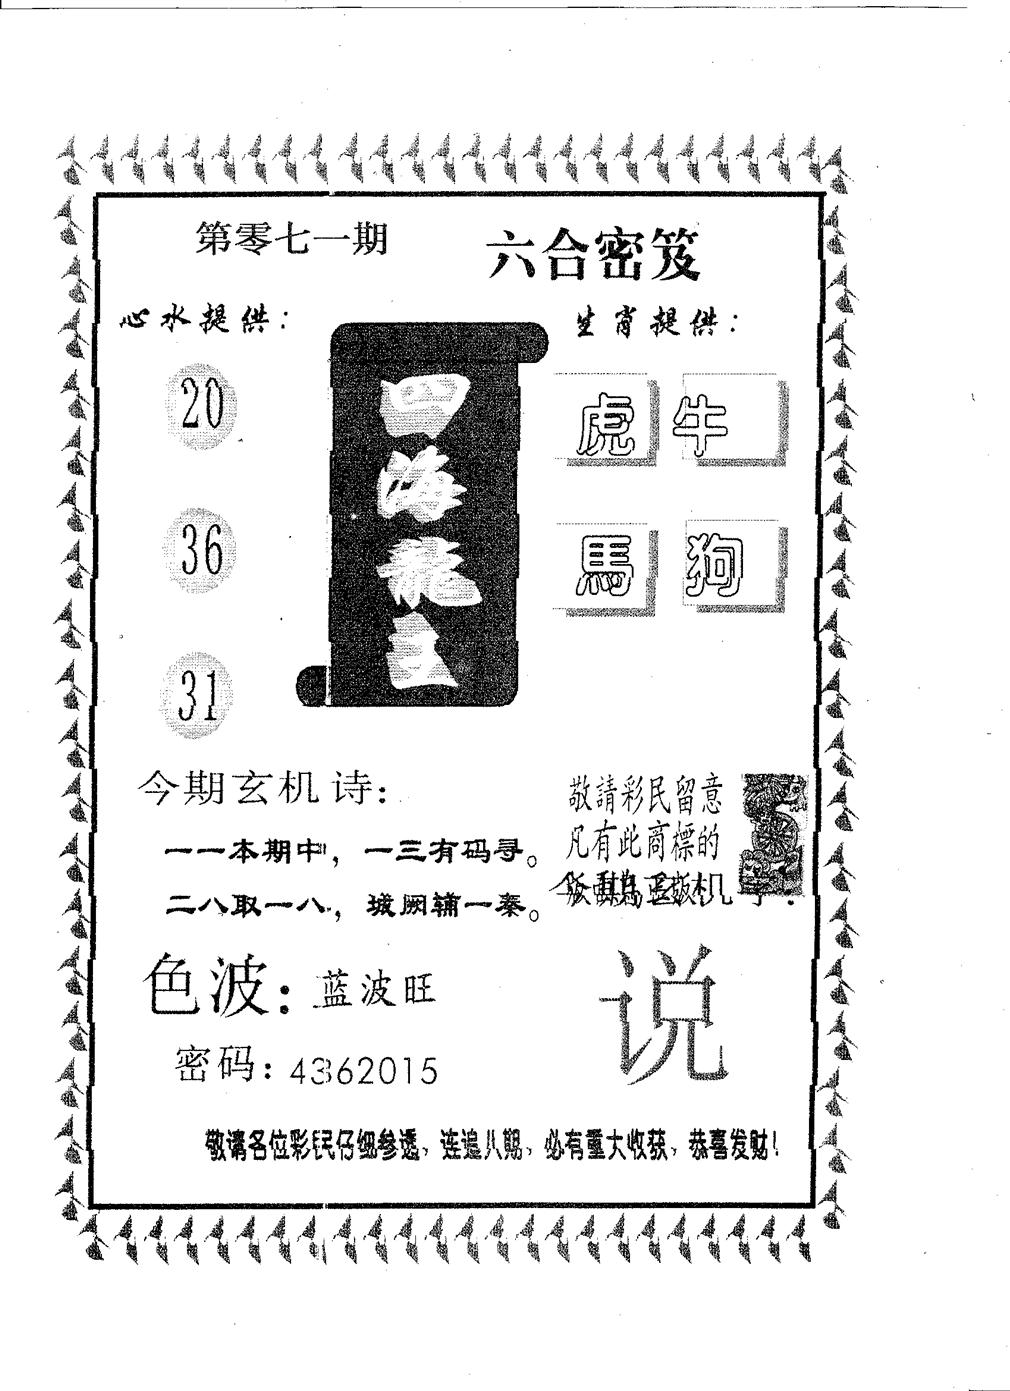 第零七一期
六合密笈
心水提供：
生肖提供：
20
36
31
四海龍王
虎 牛
馬 狗
今期玄机诗：
一一本期中，一三有码寻。
二八取一八，城阙辅一秦。
敬請彩民留意
凡有此商標的
色波：蓝波旺
说
密码：4362015
敬请各位彩民仔细参透，连追八期，必有重大收获，恭喜发财！